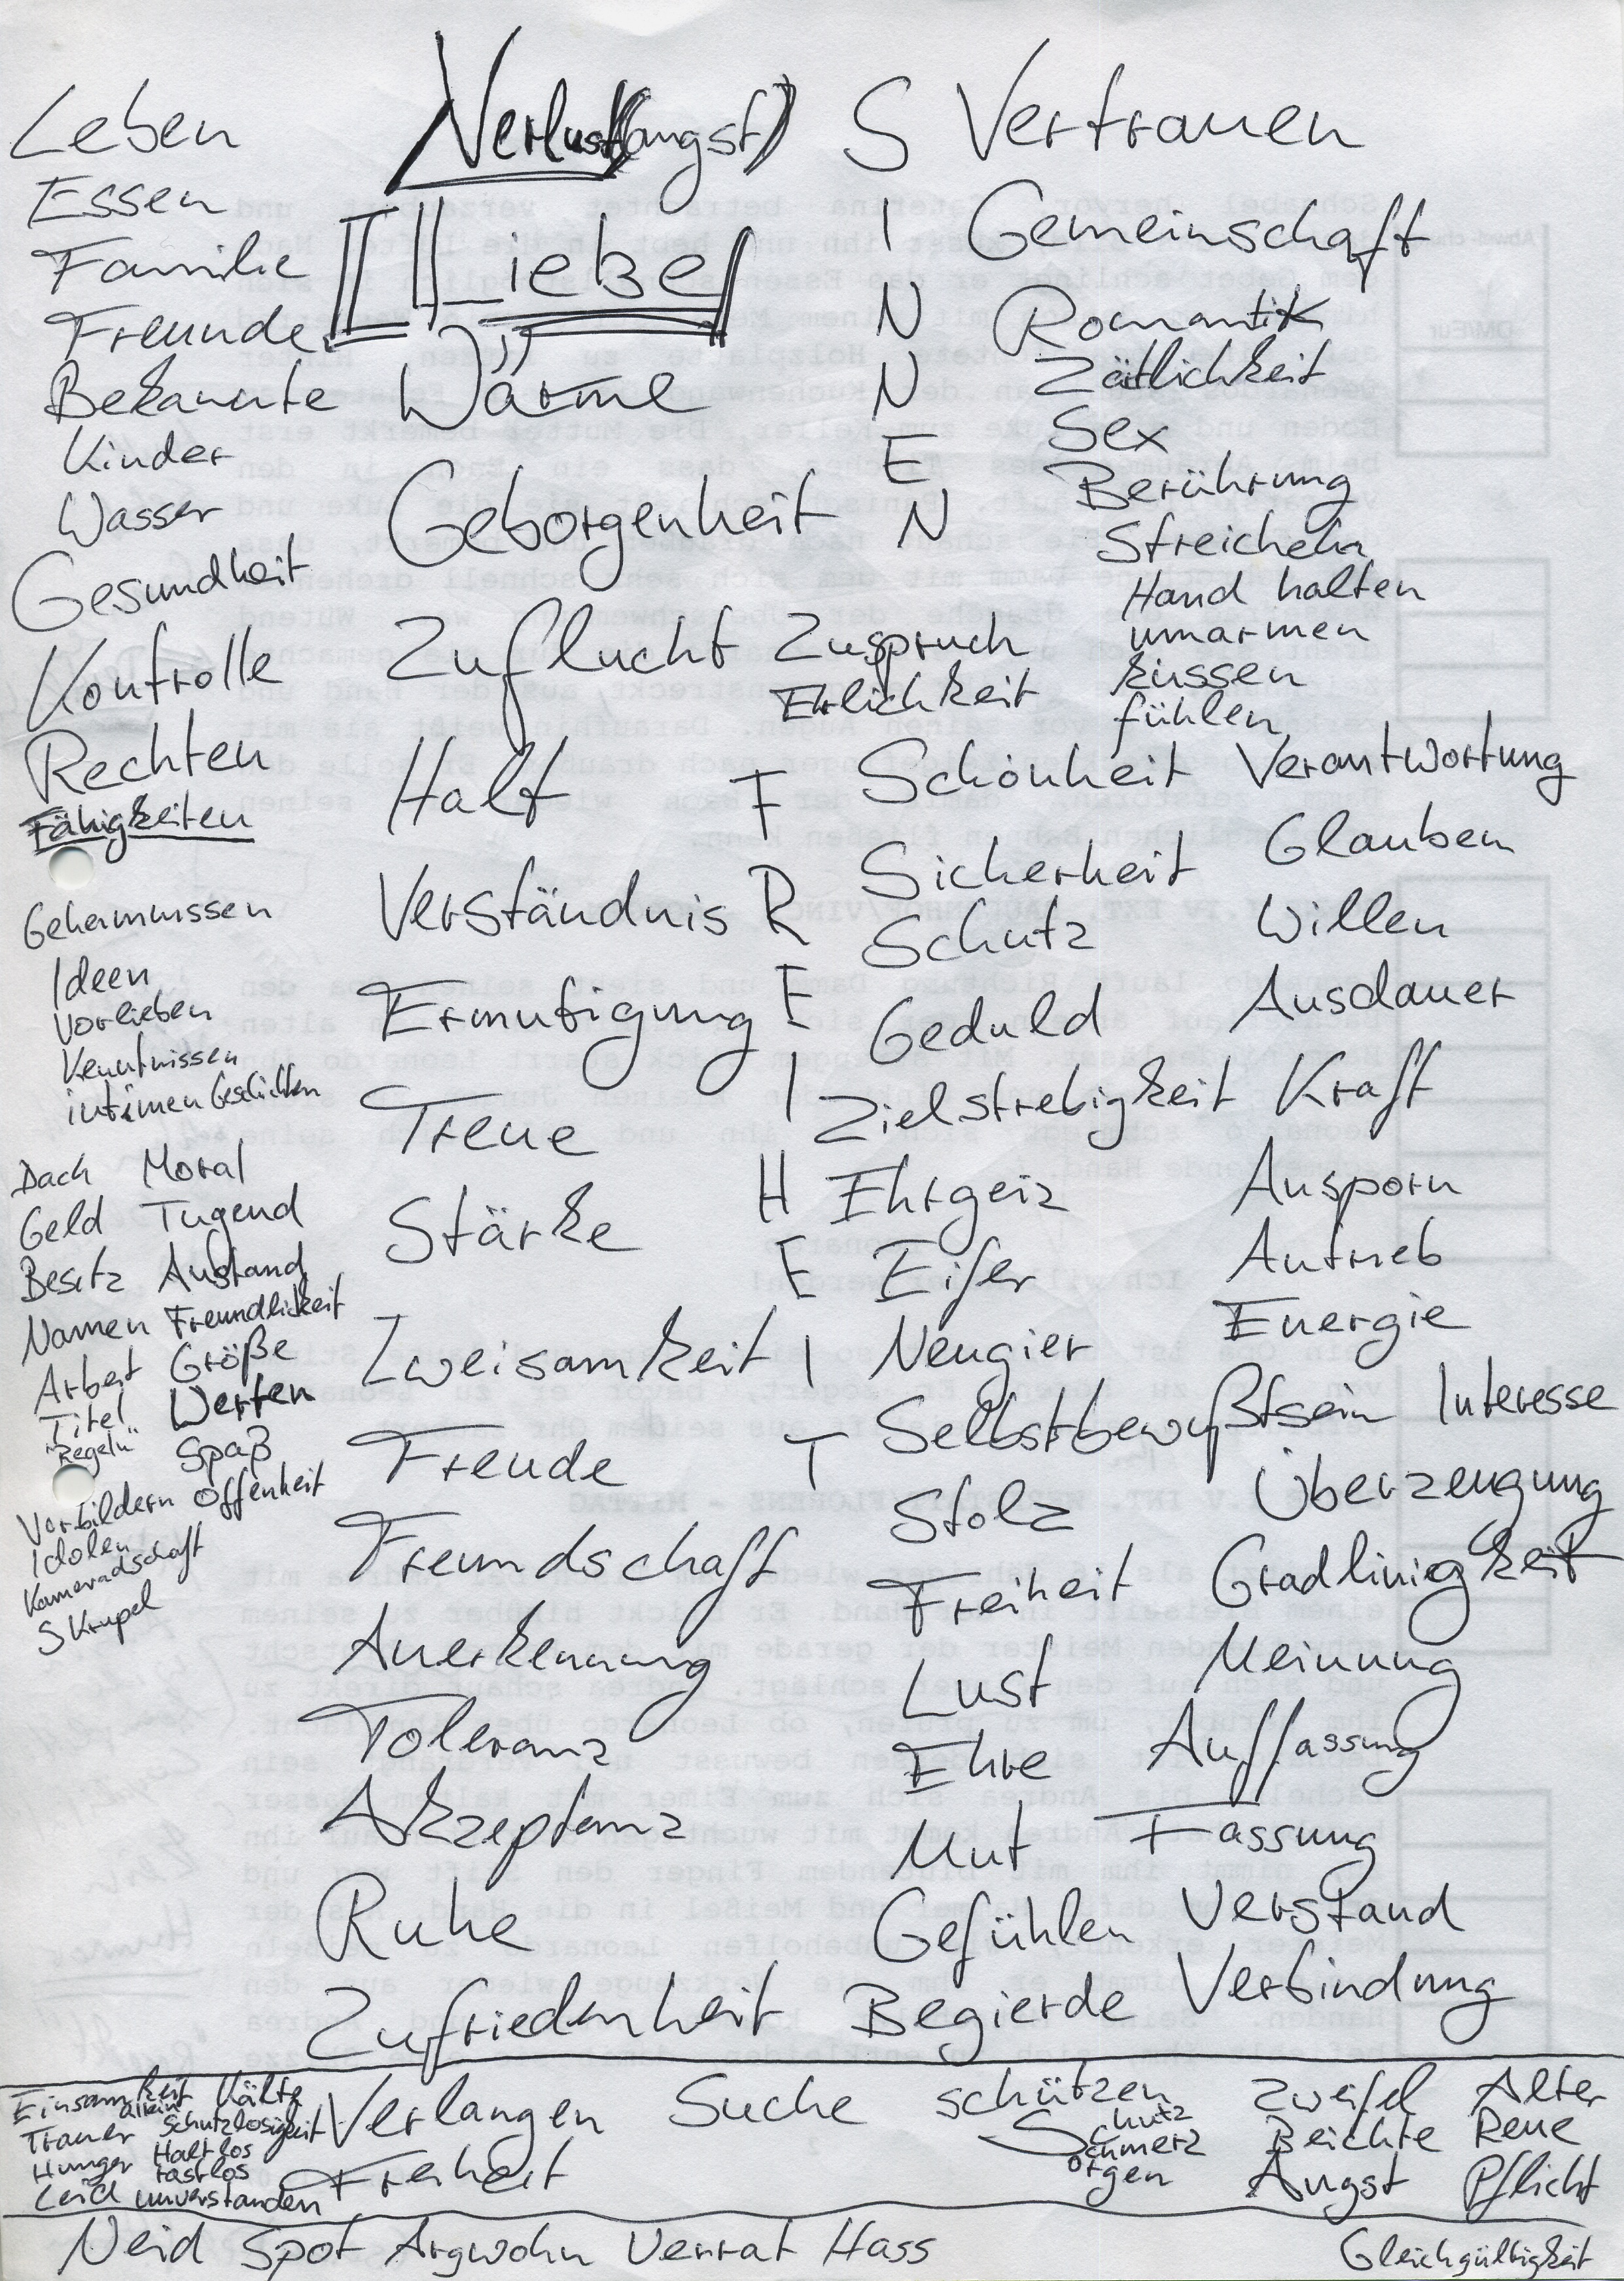 Leben
Essen
Familie
Freunde
Bekannte
Kinder
Wasser
Gesundheit
Kontrolle
Rechten
Fähigkeiten
Geheimnissen
Ideen
Vorlieben
Kenntnissen
intimen Geschichten
Dach Moral
Geld Tugend
Besitz Anstand
Namen Freundlichkeit
Arbeit Größe
Titel Werten
"Regeln" Spaß
Vorbildern Offenheit
Idolen
Kameradschaft
Skrupel
Verlust(angst)
Liebe
Wärme
Geborgenheit
Zuflucht
Halt
Verständnis
Ermutigung
Treue
Stärke
Zweisamkeit
Freude
Freundschaft
Anerkennung
Toleranz
Akzeptanz
Ruhe
Zufriedenheit
S
I
N
N
E
N
Zuspruch
Ehrlichkeit
F
R
E
I
H
E
I
T
Vertrauen
Gemeinschaft
Romantik
Zätlichkeit
Sex
Berührung
Streicheln
Hand halten
umarmen
küssen
fühlen
Schönheit
Sicherheit
Schutz
Geduld
Zielstrebigkeit
Ehrgeiz
Eifer
Neugier
Selbstbewußtsein
Stolz
Freiheit
Lust
Ehre
Mut
Gefühlen
Begierde
Verantwortung
Glauben
Willen
Ausdauer
Kraft
Ansporn
Antrieb
Energie
Interesse
Überzeugung
Gradlinigkeit
Meinung
Auffassung
Fassung
Verstand
Verbindung
Einsamkeit Kälte
allein
Trauer Schutzlosigkeit
Hunger Haltlos
rastlos
Leid unverstanden
Verlangen Suche schützen Zweifel Alter
Freiheit
Schutz
Schmerz
Sorgen
Beichte Reue
Angst Pflicht
Neid Spot Argwohn Verrat Hass Gleichgültigkeit